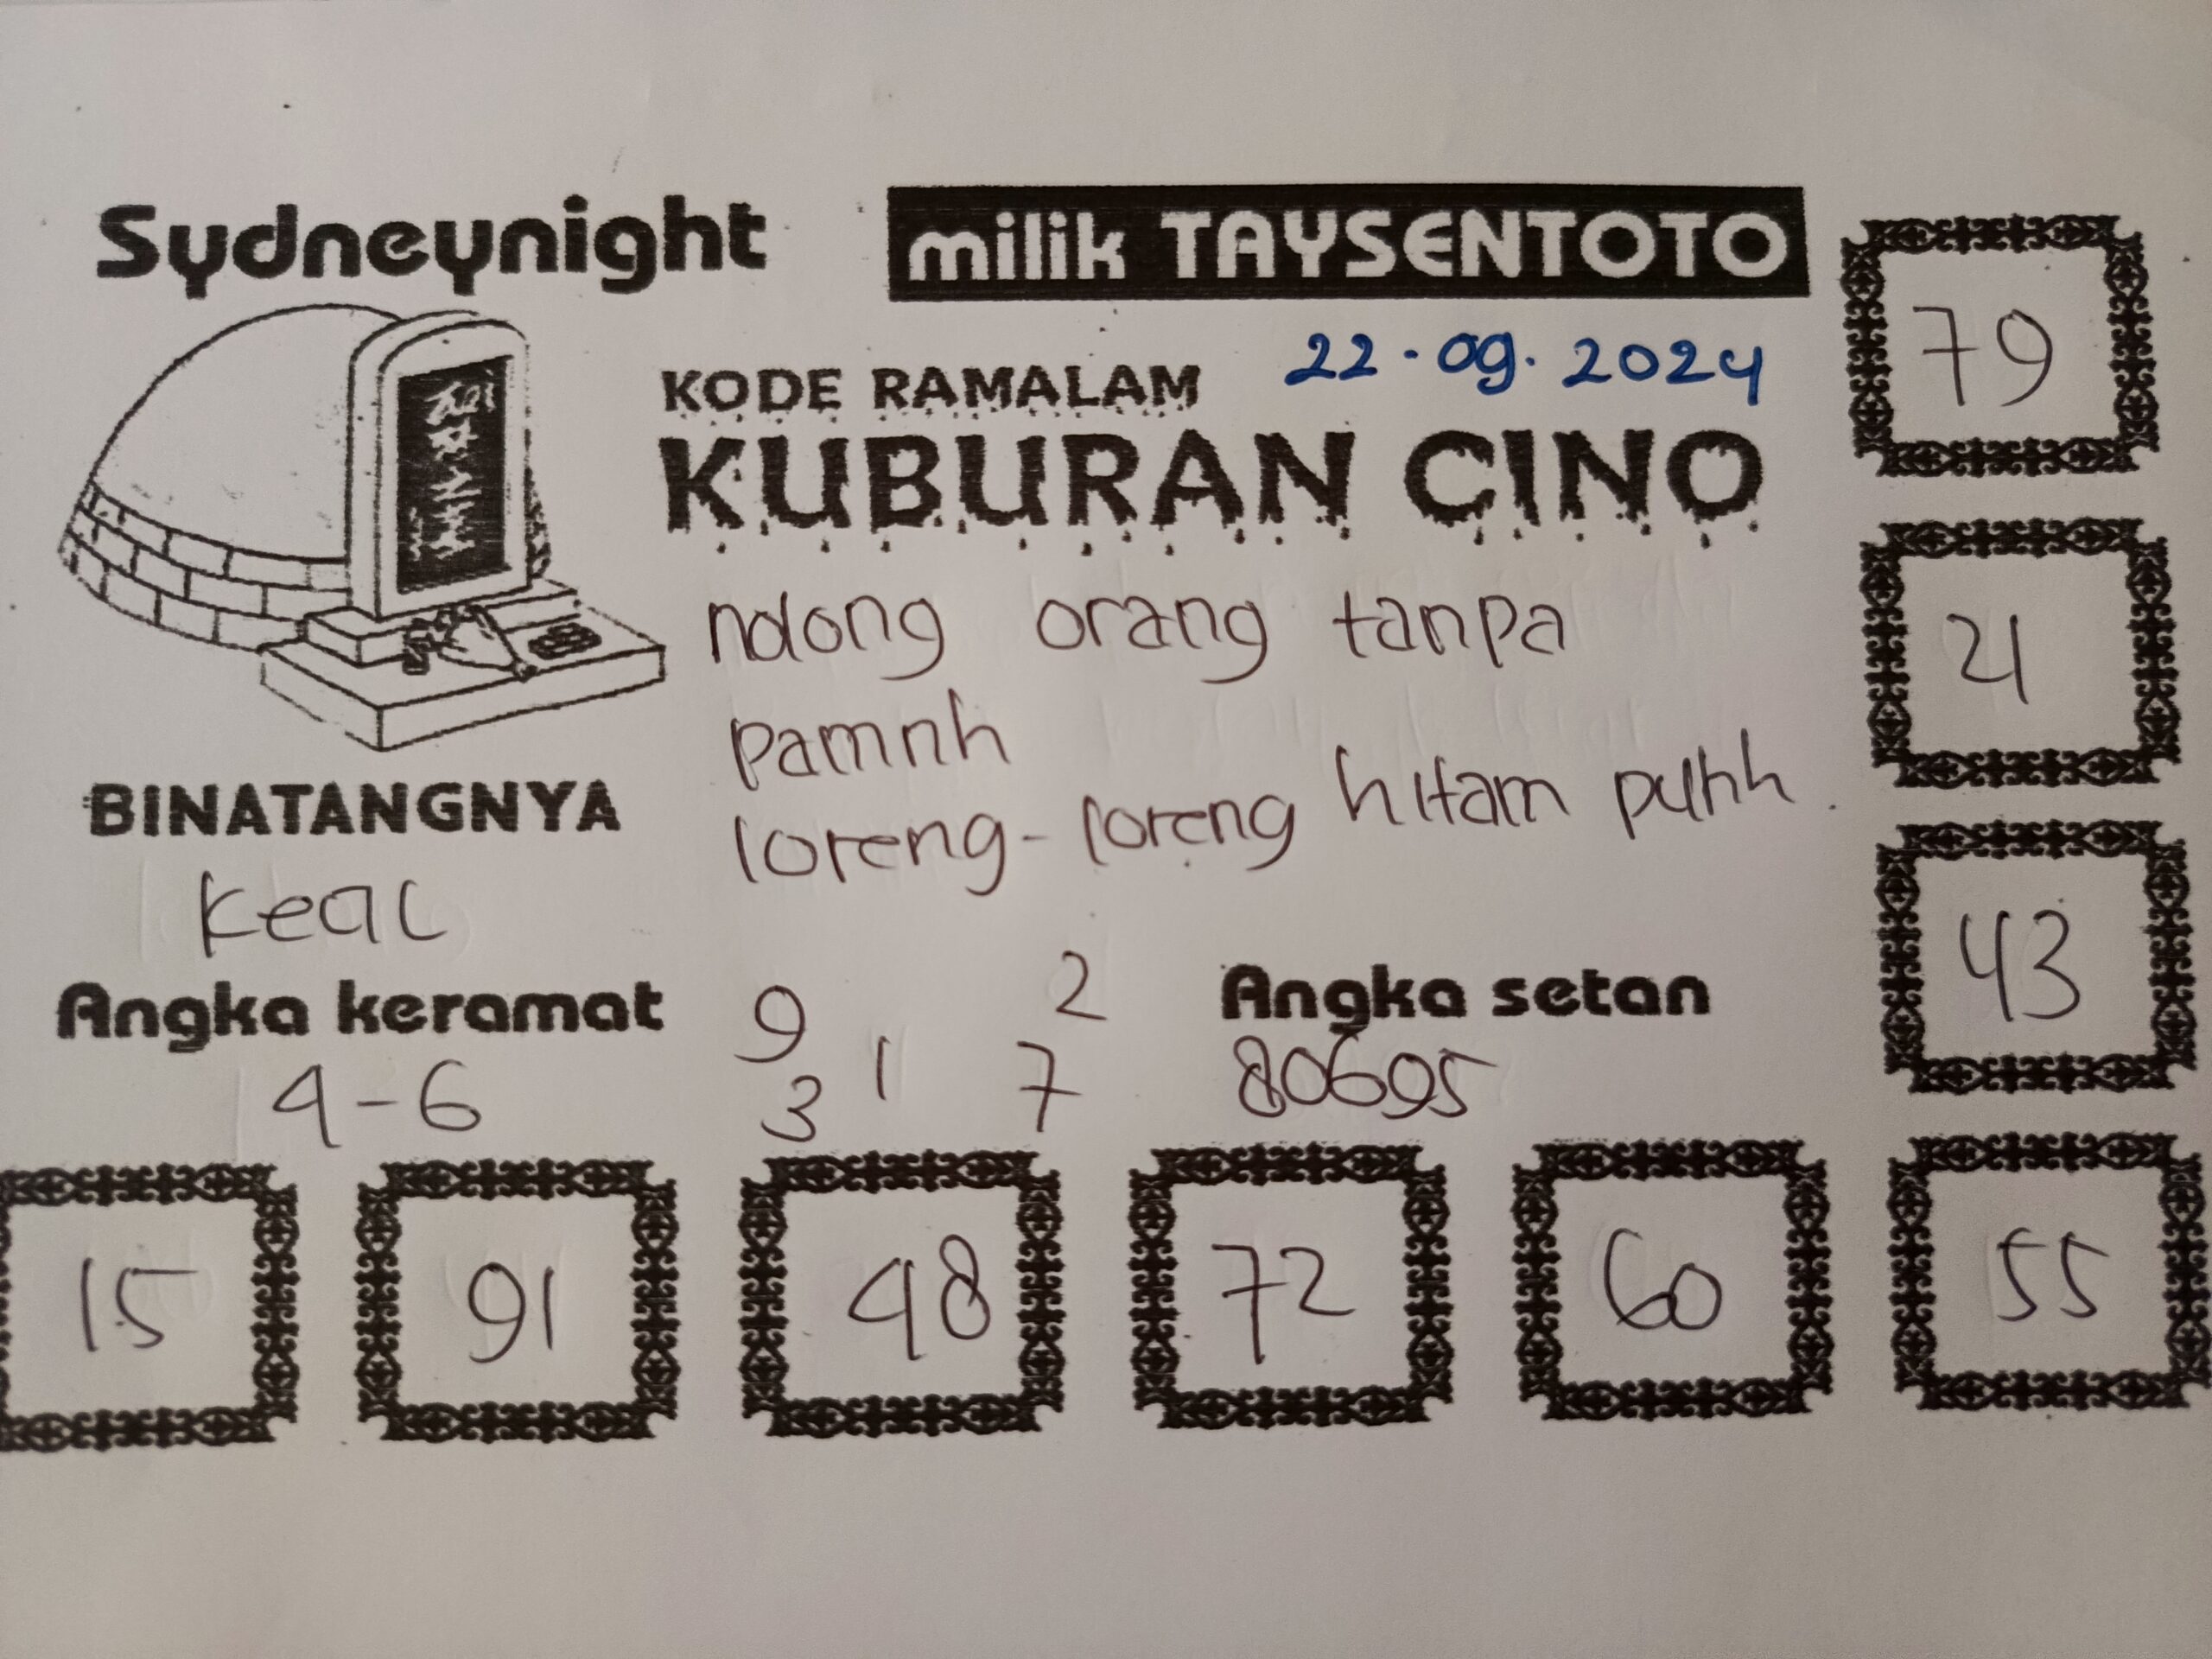 Sydneynight
milik TAYSENTOTO
79
KODE RAMALAM 22.09.2024
KUBURAN CINO
ndong orang tanpa
21
pamnh
loreng-loreng hitam putih
BINATANGNYA
43
Angka keramat
9 2
Angka setan
4-6
3 1 7
80695
15 91 48 72 60 55